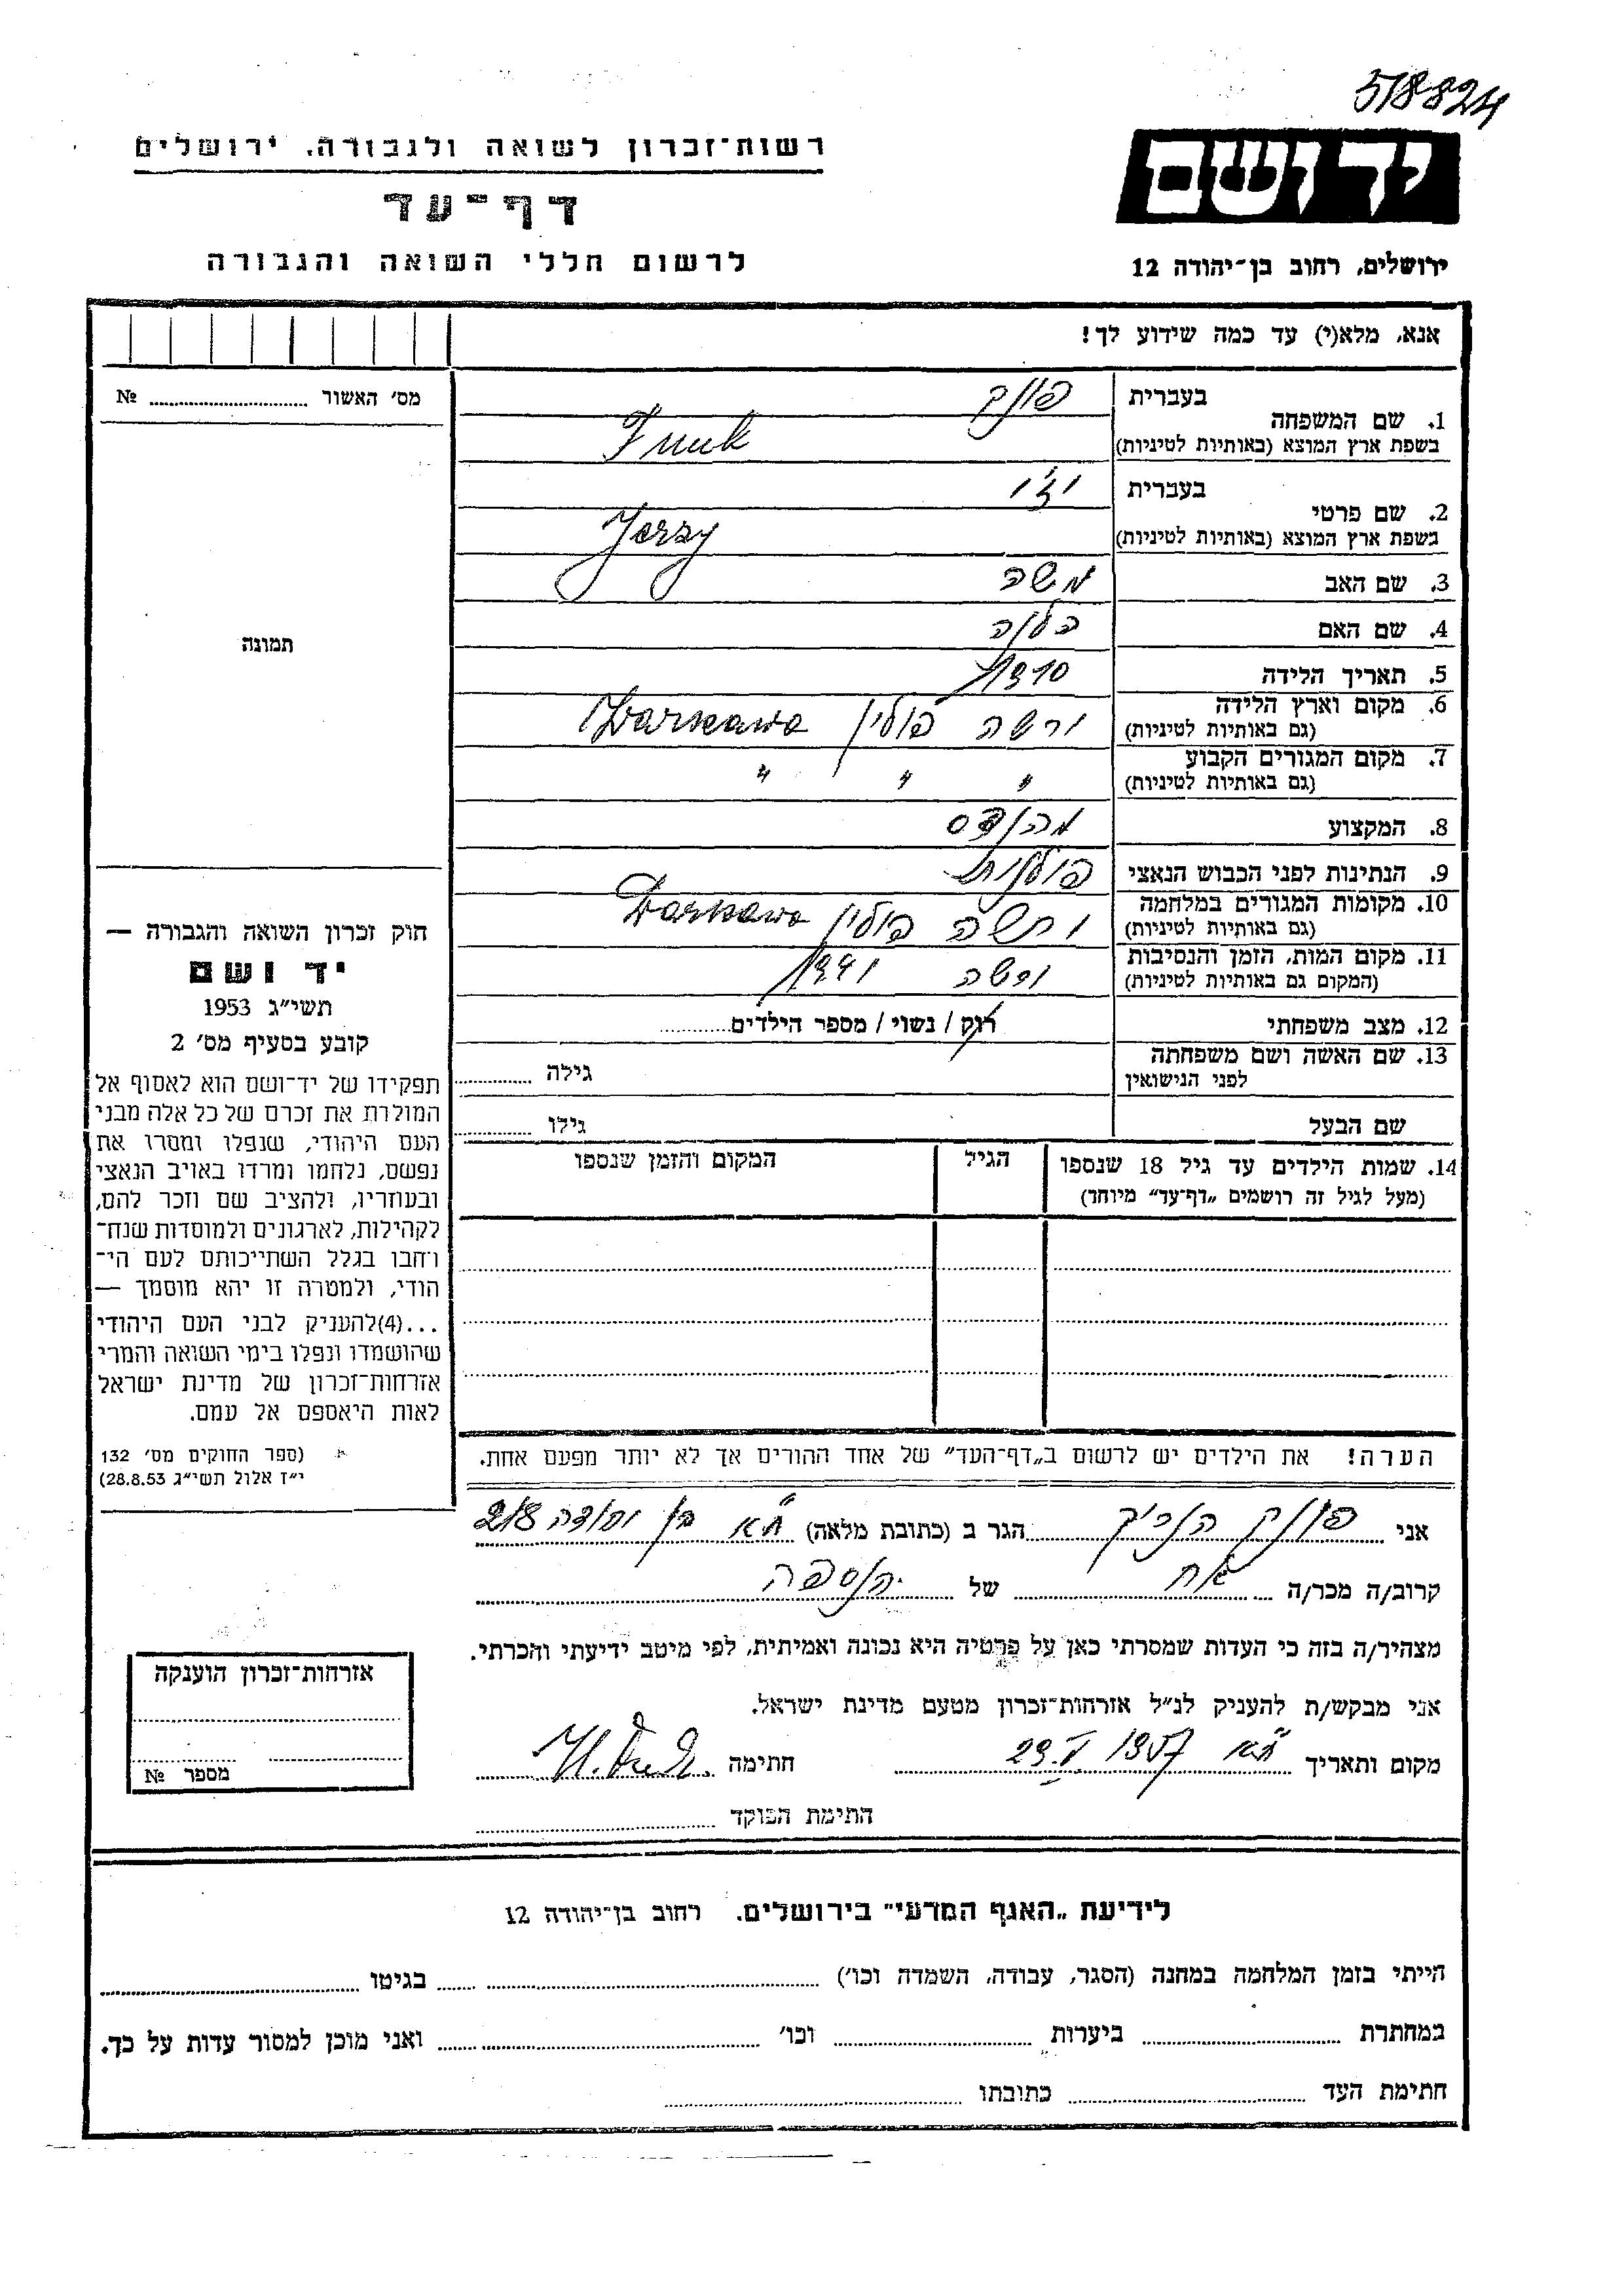 518824
רשות־זכרון לשואה ולגבורה, ירושלים
ידושם
דף־עד
לרשום חללי השואה והגבורה
ירושלים, רחוב בן־יהודה 12
אנא, מלא(י) עד כמה שידוע לך!
מס' האשור № 
1. שם המשפחה
בעברית פונק
בשפת ארץ המוצא (באותיות לטיניות) Funk
2. שם פרטי
בעברית
בשפת ארץ המוצא (באותיות לטיניות) Jerzy
3. שם האב משה
4. שם האם הלנה
5. תאריך הלידה 1910
6. מקום וארץ הלידה
(גם באותיות לטיניות) ורשה פולין Warszawa
7. מקום המגורים הקבוע
(גם באותיות לטיניות) " " "
8. המקצוע מהנדס
9. הנתינות לפני הכבוש הנאצי פולנית
10. מקומות המגורים במלחמה
(גם באותיות לטיניות) ורשה פולין Warszawa
11. מקום המות, הזמן והנסיבות
(המקום גם באותיות לטיניות) ורשה 1941
12. מצב משפחתי רוק / נשוי / מספר הילדים
13. שם האשה ושם משפחתה
לפני הנישואין גילה
שם הבעל גילו
14. שמות הילדים עד גיל 18 שנספו הגיל המקום והזמן שנספו
(מעל לגיל זה רושמים „דף־עד" מיוחד)
הערה! את הילדים יש לרשום ב„דף־העד" של אחד ההורים אך לא יותר מפעם אחת.
תמונה
חוק זכרון השואה והגבורה —
יד ושם
תשי"ג 1953
קובע בסעיף מס' 2
תפקידו של יד־ושם הוא לאסוף אל
המולדת את זכרם של כל אלה מבני
העם היהודי, שנפלו ומסרו את
נפשם, נלחמו ומרדו באויב הנאצי
ובעוזריו, ולהציב שם וזכר להם,
לקהילות, לארגונים ולמוסדות שנח־
רחבו בגלל השתייכותם לעם הי־
הודי, ולמטרה זו יהא מוסמך —
...(4)להעניק לבני העם היהודי
שהושמדו ונפלו בימי השואה והמרי
אזרחות־זכרון של מדינת ישראל
לאות היאספם אל עמם.
(ספר החוקים מס' 132
י"ז אלול תשי"ג 28.8.53)
אני פונק הנריק הגר ב (כתובת מלאה) ת"א בן יהודה 218
קרוב/ה מכר/ה אח של הנספה
מצהיר/ה בזה כי העדות שמסרתי כאן על פרטיה היא נכונה ואמיתית, לפי מיטב ידיעתי והכרתי.
אני מבקש/ת להעניק לנ"ל אזרחות־זכרון מטעם מדינת ישראל.
מקום ותאריך ת"א 29.V 1957 חתימה H. Funk
חתימת הפוקד
אזרחות־זכרון הוענקה
מספר №
לידיעת „האגף המדעי" בירושלים, רחוב בן־יהודה 12
הייתי בזמן המלחמה במחנה (הסגר, עבודה, השמדה וכו') בגיטו
במחתרת ביערות וכו' ואני מוכן למסור עדות על כך.
חתימת העד כתובתו